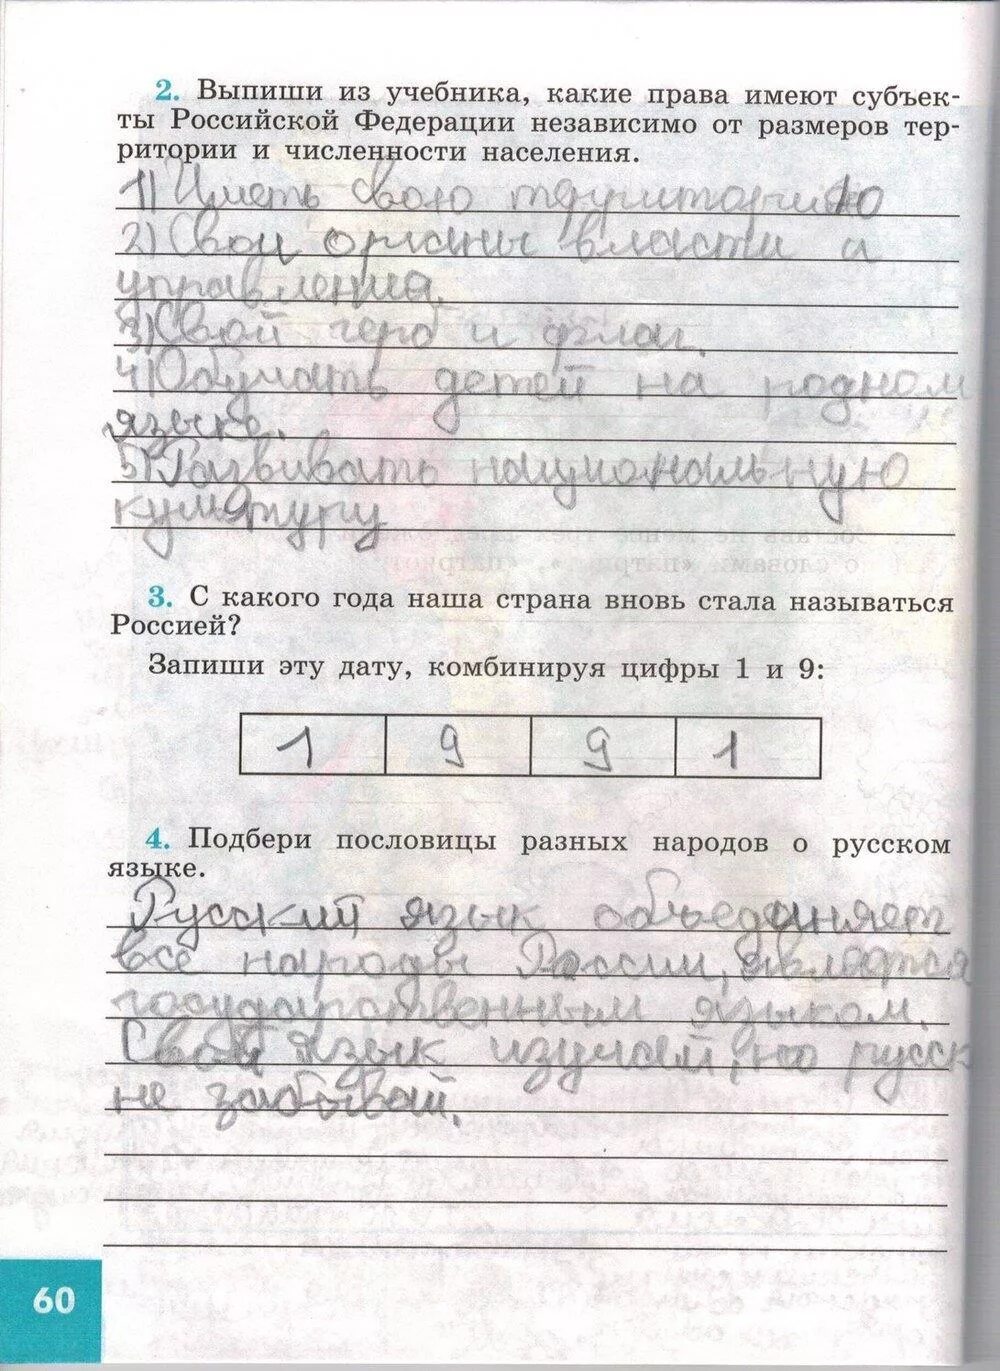 2. Выпиши из учебника, какие права имеют субъек-
ты Российской Федерации независимо от размеров тер-
ритории и численности населения.
1) Иметь свою территорию
2) Свои органы власти и
управления.
3) Свой герб и флаг.
4) Обучать детей на родном
языке.
5) Развивать национальную
культуру
3. С какого года наша страна вновь стала называться
Россией?
Запиши эту дату, комбинируя цифры 1 и 9:
1 9 9 1
4. Подбери пословицы разных народов о русском
языке.
Русский язык объединяет
все народы России, является
государственным языком.
Свой язык изучай, но русск
не забывай.
60